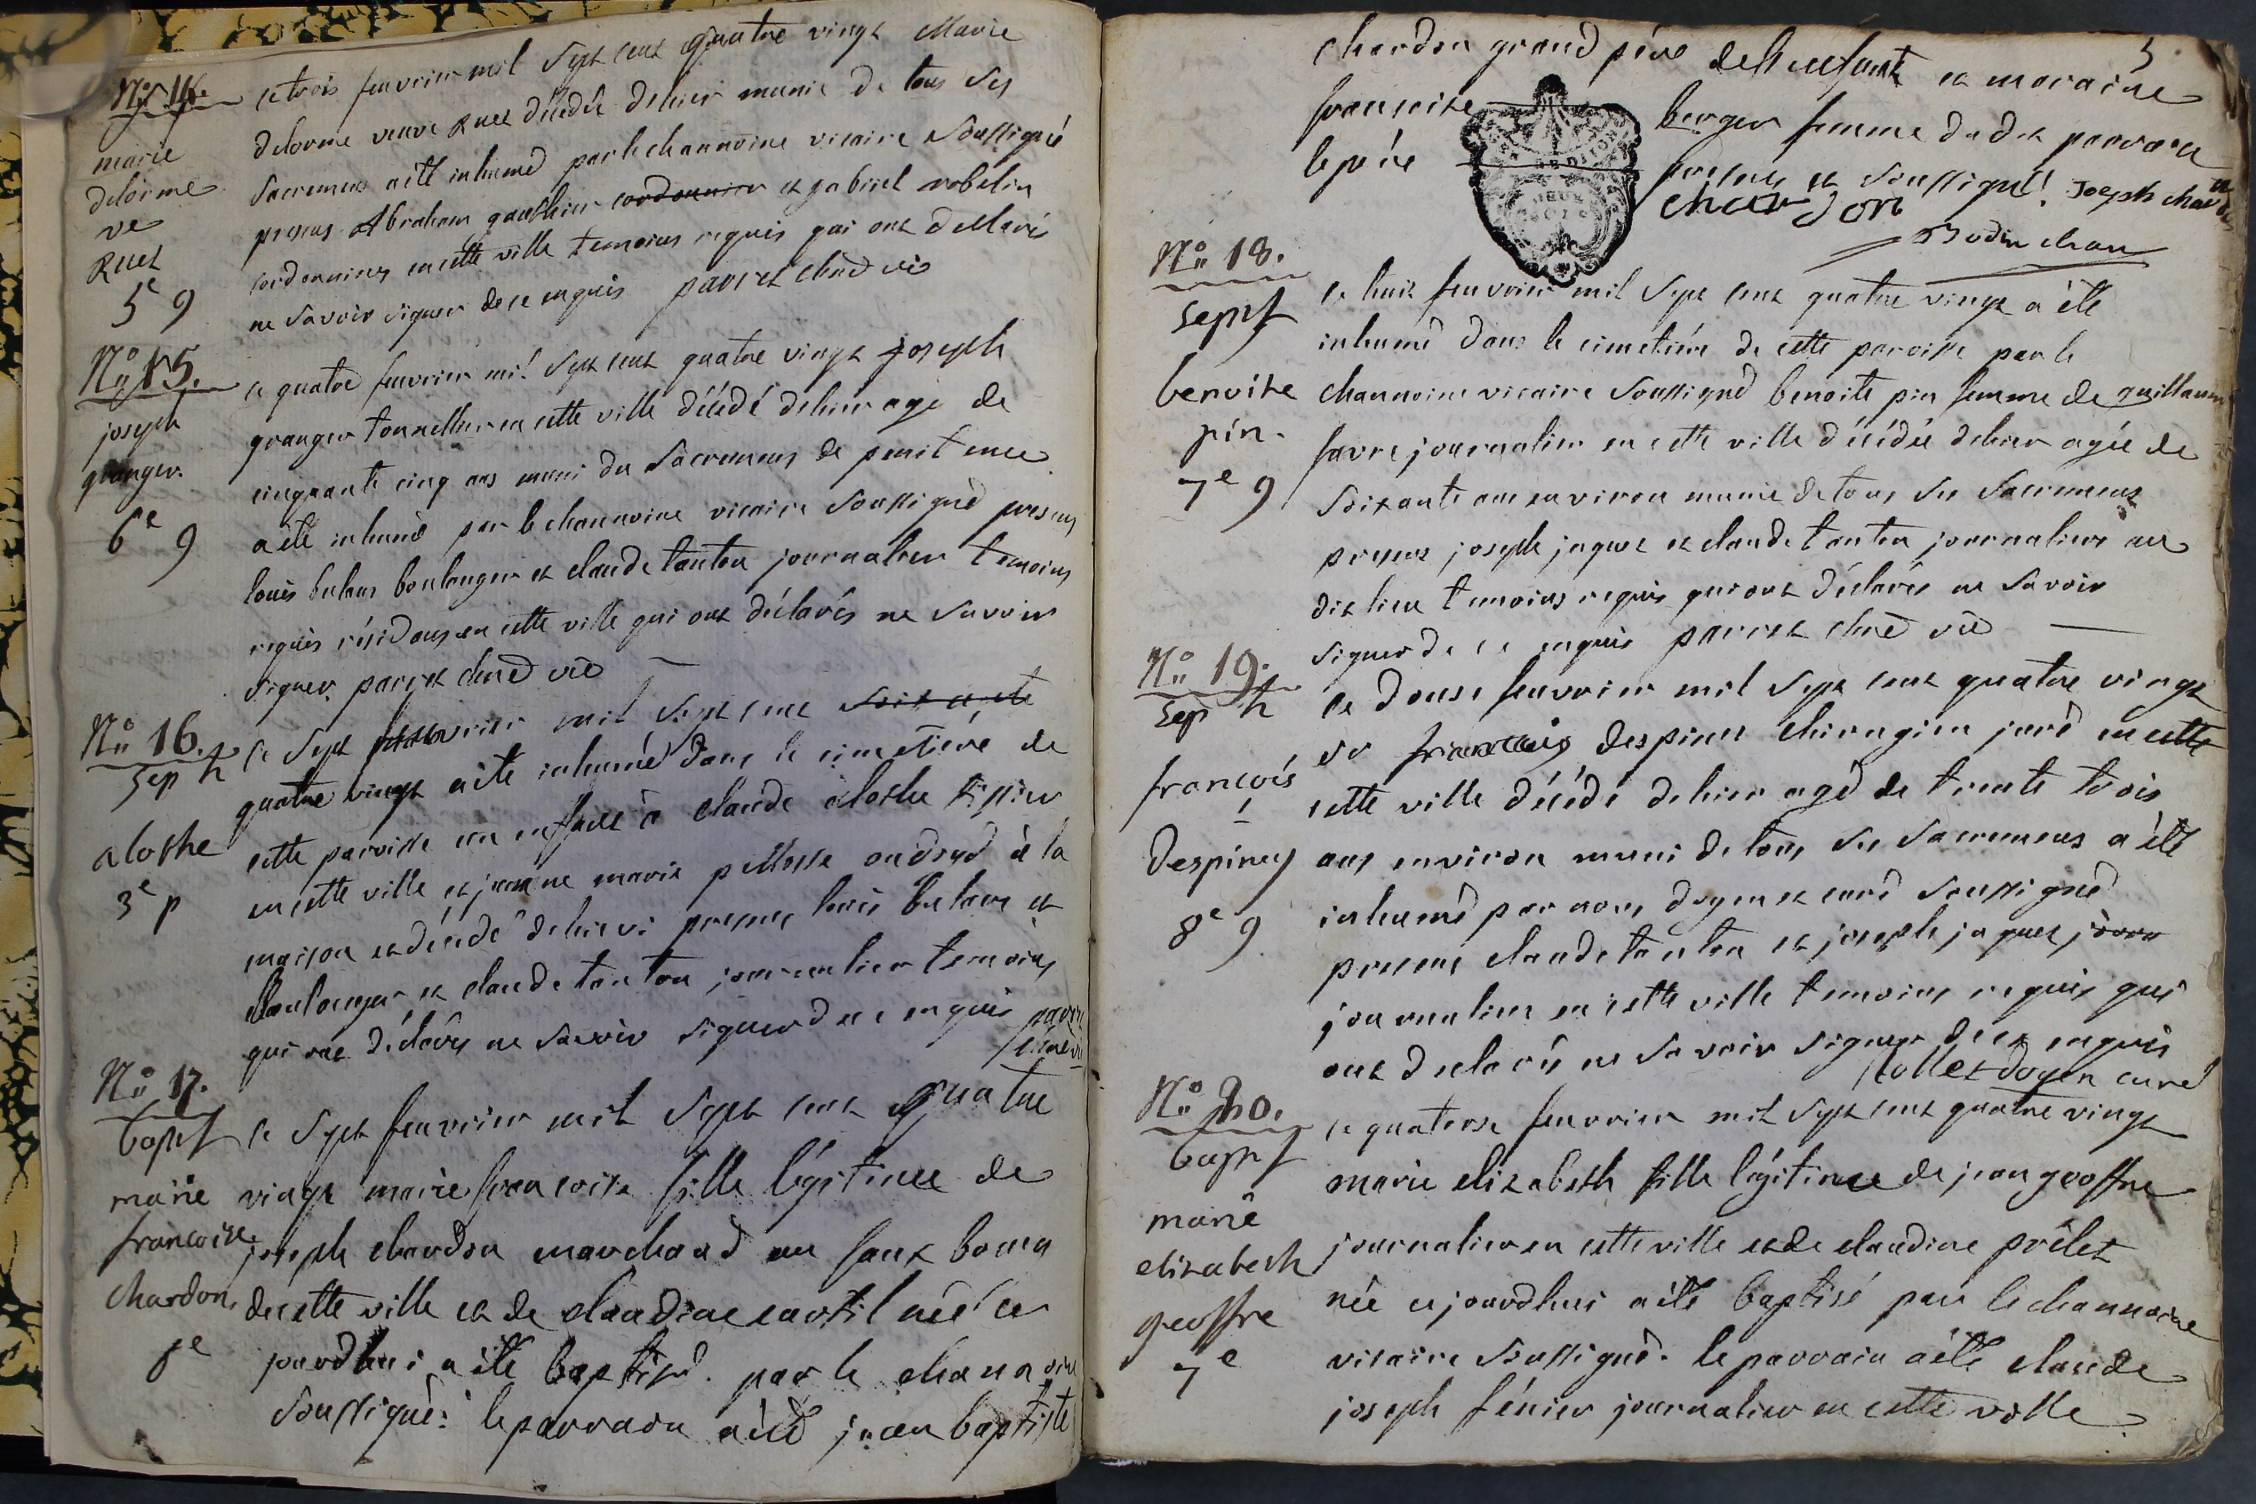 No 14.
marie
delorme
ve
Ruet
5e 9
ce trois fevrier mil sept cent quatre vingt Marie
delorme veuve Ruet décédée dehier munie de tous ses
sacremens a été inhumé par le channoine vicaire soussigné
presens Abraham gauthier cordonnier et gabriel robelin
cordonniers en cette ville temoins requis qui ont declaré
ne savoir signer de ce enquis paviet chne vic
No 15.
joseph
granger.
6e 9
ce quatre fevrier mil sept cent quatre vingt joseph
granger tonnellier en cette ville décédé dehier agé de
cinquante cinq ans muni du sacremens de penitence
a été inhumé par le channoine vicaire soussigné presens
louis bulans boulanger et claude tonton journalier temoins
requis résidans en cette ville qui ont déclarés ne savoir
signer. paviet chne vic
No 16.
sep h
alothe
3e p
ce sept fevrier mil sept cent soixante
quatre vingt a été inhumé dans le cimetiere de
cette paroisse un enfant à claude alothe tissier
en cette ville et jeanne marie pellosse ondoyé à la
maison et décédé dehier presens louis bulans et
Boulanger et claude tonton journalier temoins
qui ont déclarés ne savoir signer de ce enquis paviet
chne vic
No 17.
bapt
marie
francoise
chardon.
ce sept fevrier mil sept cent quatre
vingt marie francoise fille légitime de
joseph chardon marchand au faux bourg
de cette ville et de claudine cartil née ce
jourdhui a été baptisé par le chanoine
soussigné. le parrain a été jean baptiste
5
chardon grand père de l'enfant et maraine
francoise berger femme dudit parrain
le père present et soussigné. Joseph chardon
chardon
Bodin chan
No 18.
sept
benoite
pin.
7e 9
ce huit fevrier mil sept cent quatre vingt a été
inhumé dans le cimetière de cette paroisse par le
channoine vicaire soussigné benoite pin femme de guillaume
favre journalier en cette ville décédée dehier agée de
soixante ans environ munie de tous ses sacremens
presens joseph jaquet et claude tonton journaliers au
dit lieu temoins requis qui ont déclarés ne savoir
signer de ce enquis paviet chne vic
No 19.
sep h
francois
Despiney
8e 9
ce douse fevrier mil sept cent quatre vingt
sr francois despiney chirurgien juré en cette
cette ville décédé dehier agé de trente trois
ans environ muni de tous ses sacremens a été
inhumé par nous doyen et curé soussigné
presens claude tonton et joseph jaquet jour
journaliers en cette ville temoins requis qui
ont declarés ne savoir signer de ce enquis
doyen curé
No 20.
bapt
marie
elizabeth
geoffre
7e
ce quatorse fevrier mil sept cent quatre vingt
marie elizabeth fille légitime de jean geoffre
journalier en cette ville et de claudine prélet
née ce jourdhui a été baptisé par le channoine
vicaire soussigné. le parrain a été claude
joseph fénier journalier en cette ville.